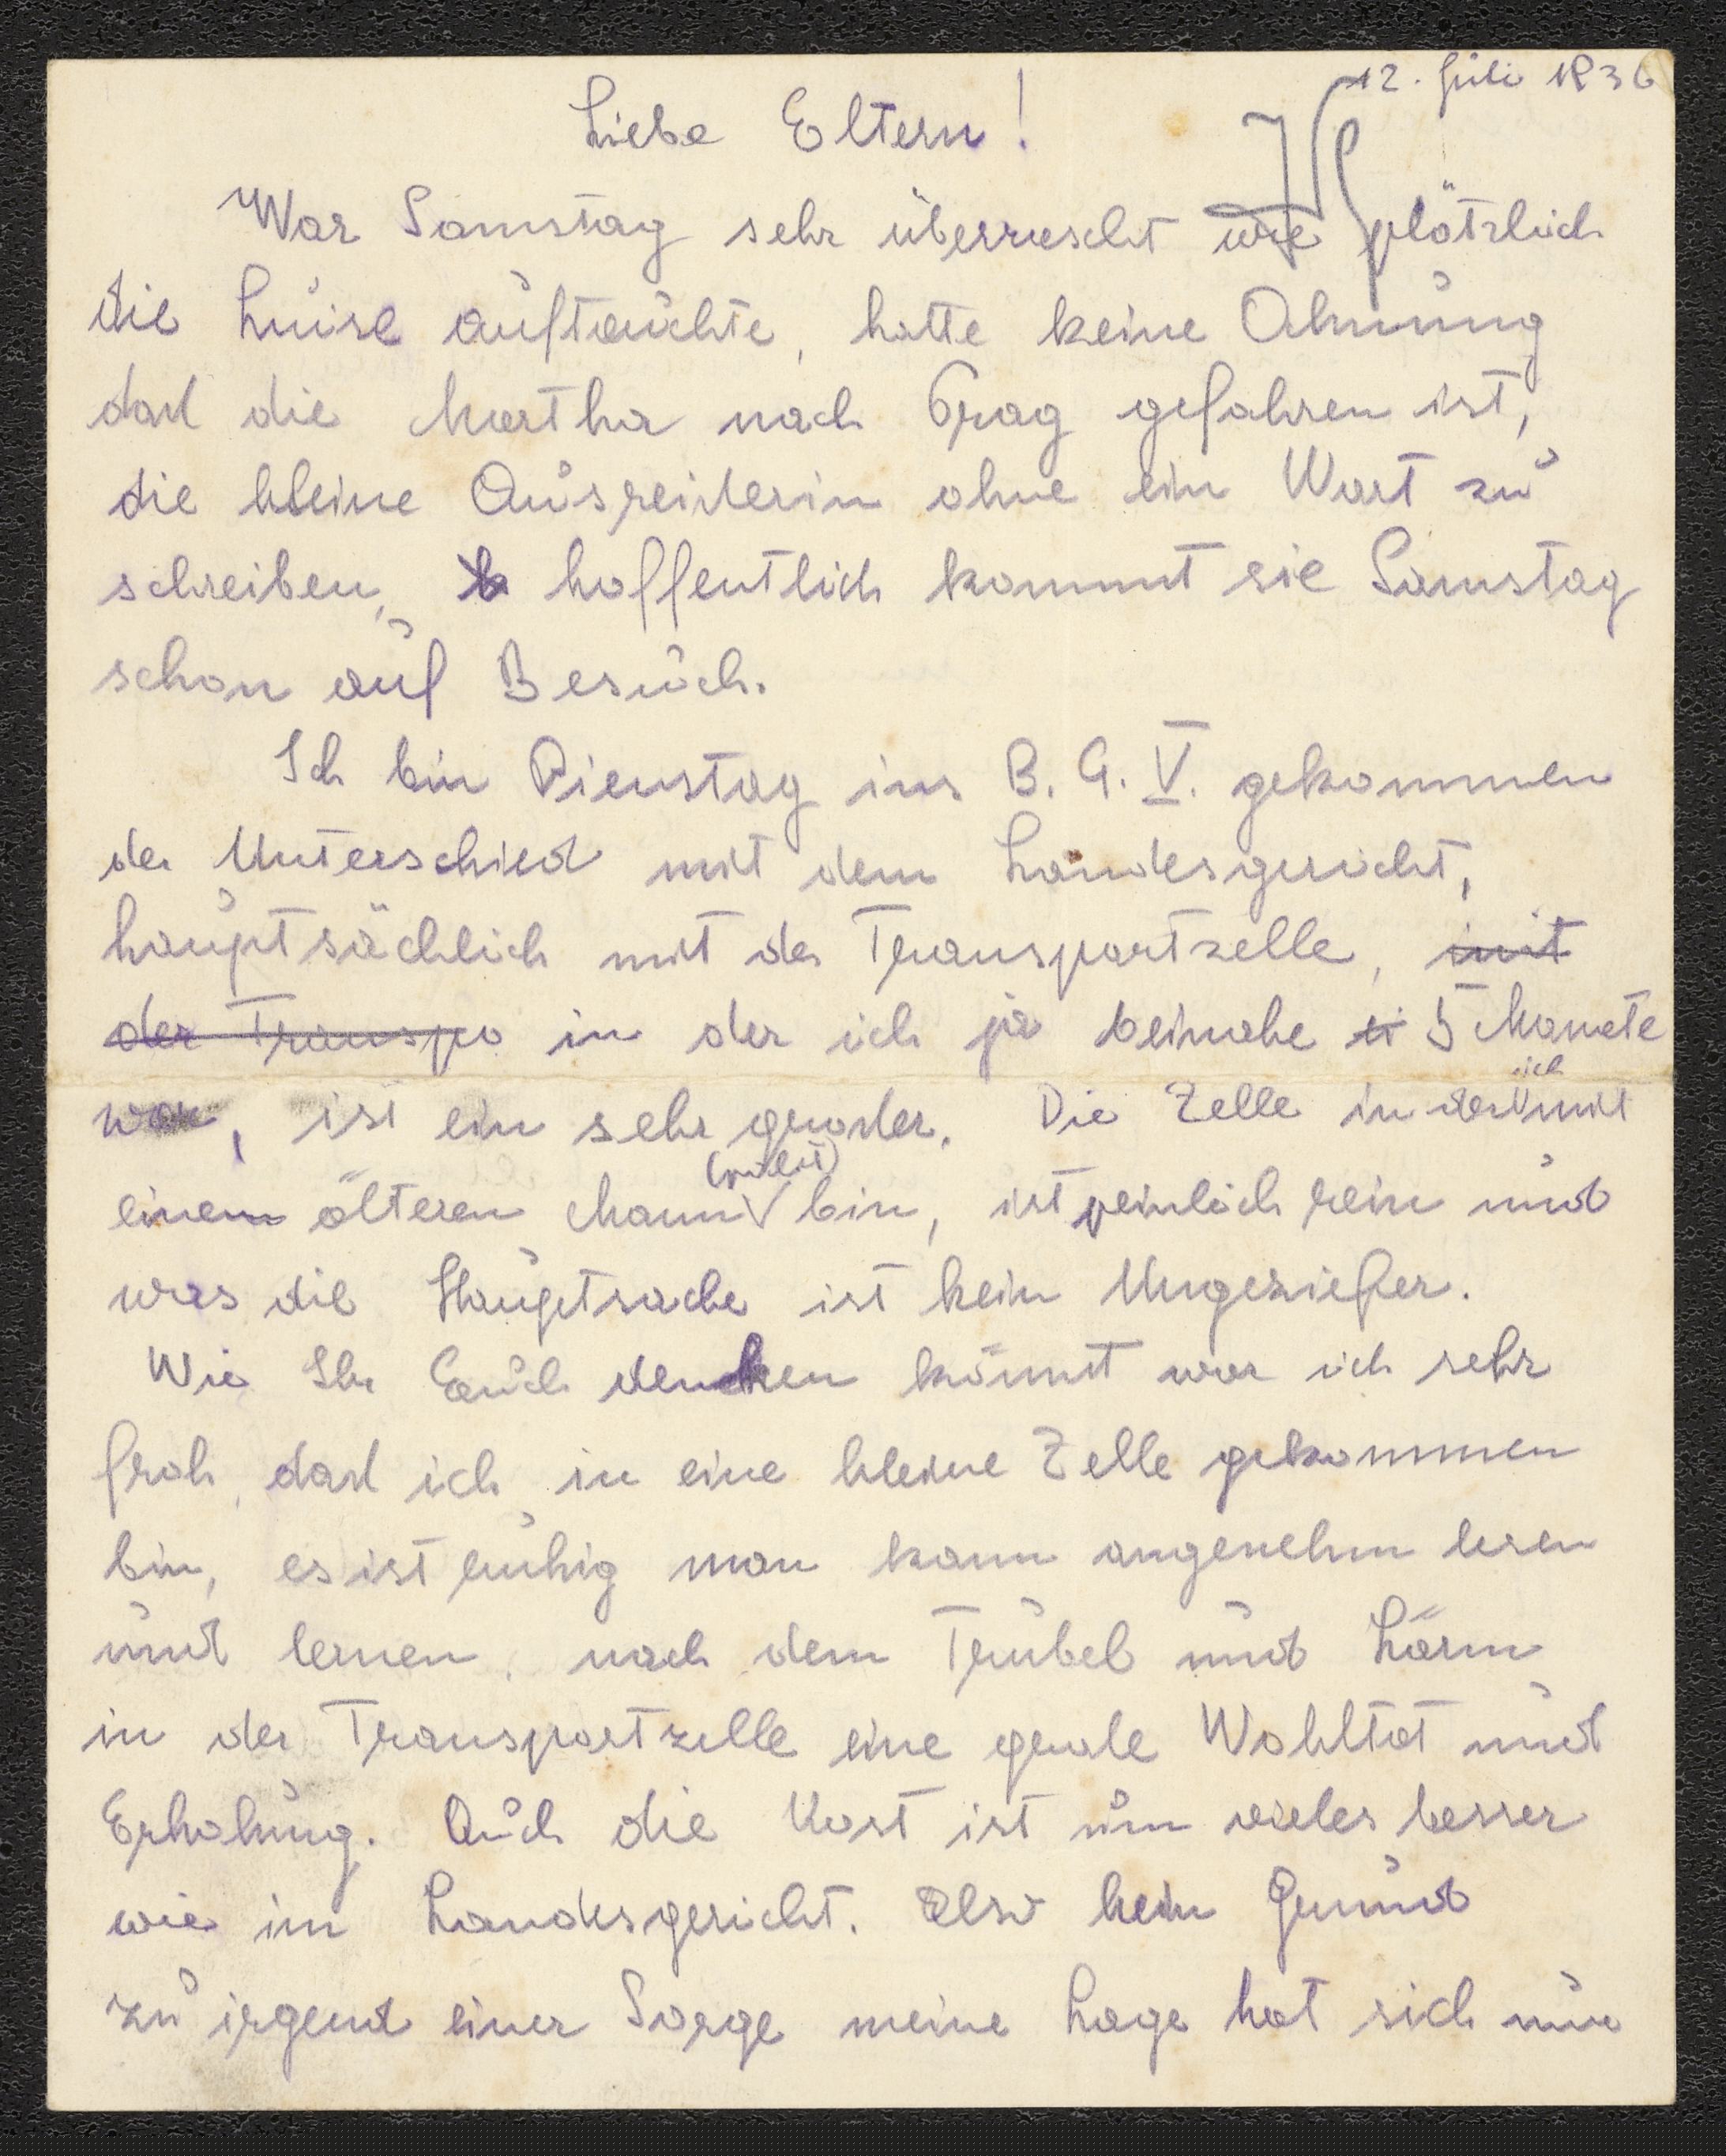 12. Juli 1936
Liebe Eltern!
War Samstag sehr überrascht wie plötzlich
die Luise auftauchte, hatte keine Ahnung
daß die Martha nach Prag gefahren ist,
die kleine Ausreißerin ohne ein Wort zu
schreiben, hoffentlich kommt sie Samstag
schon auf Besuch.
Ich bin Dienstag ins B. G. V. gekommen
der Unterschied mit dem Landesgericht,
hauptsächlich mit der Transportzelle, mit
der Transpo in der ich ja beinahe 5 Monate
war, ist ein sehr großer. Die Zelle in der ich mit
einem älteren Mann (polit) bin, ist peinlich rein und
was die Hauptsache ist kein Ungeziefer.
Wie Ihr Euch denken könnt war ich sehr
froh, daß ich in eine kleine Zelle gekommen
bin, es ist ruhig man kann angenehm lesen
und lernen, nach dem Trubel und Lärm
in der Transportzelle eine große Wohltat und
Erholung. Auch die Kost ist um vieles besser
wie im Landesgericht. Also kein Grund
zu irgend einer Sorge meine Lage hat sich nur